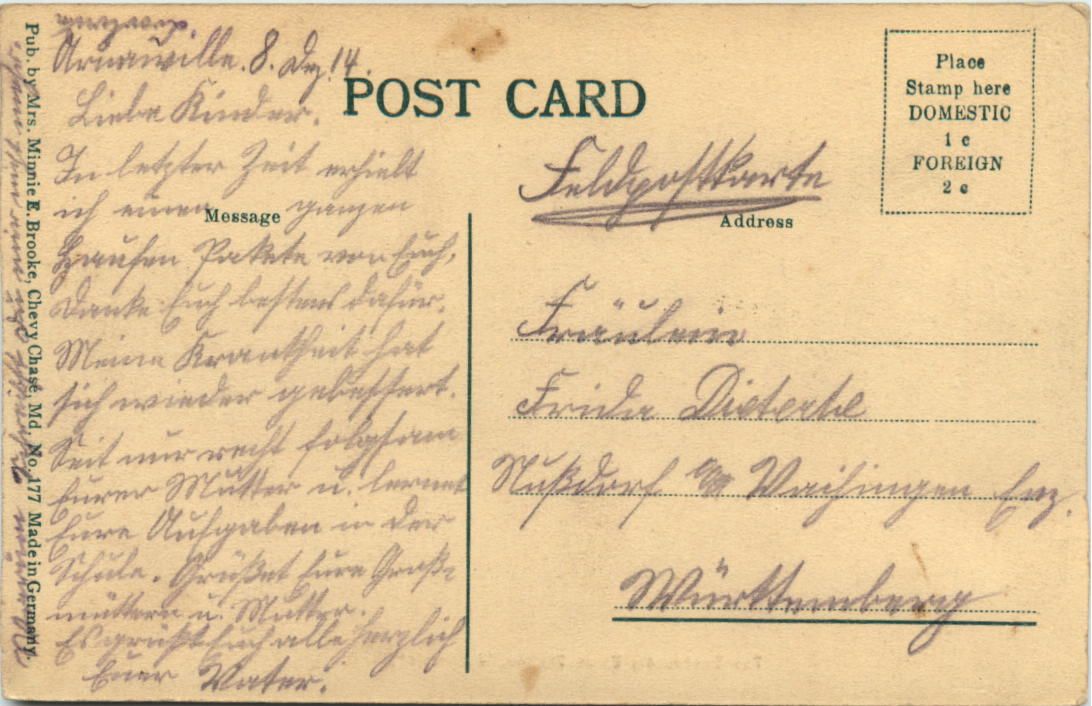 Arnaville. 8. Dez. 14.
Liebe Kinder.
In letzter Zeit erhielt
ich einen ganzen
Haufen Pakete von Euch,
Danke Euch bestens dafür.
Meine Krankheit hat
sich wieder gebessert.
Seit nur recht folgsam
Eurer Mutter u. lernet
Eure Aufgaben in der
Schule. Grüßet Eure Groß-
müttern u. Mutter.
Es grüßt Euch alle herzlich
Euer Vater.
Pub. by Mrs. Minnie E. Brooke, Chevy Chase, Md. No. 177 Made in Germany.
POST CARD
Message
Address
Place
Stamp here
DOMESTIC
1 c
FOREIGN
2 c
Feldpostkarte
Fräulein
Frida Dieterle
Nußdorf a/ Vaihingen Enz.
Württemberg